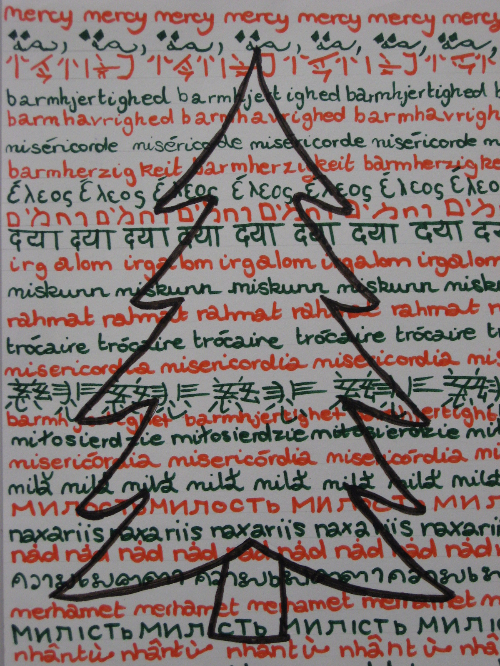 mercy mercy mercy mercy mercy
barmhjertighed barmhjertighed barmhjertighed
barmhavrighed barmhavrighed barmhavrighed
miséricorde miséricorde miséricorde miséricorde
barmherzigkeit barmherzigkeit barmherzigke
έλεος έλεος έλεος έλεος έλεος έλεος έλεος
רחמים רחמים רחמים
दया दया दया दया दया दया दया दया
irgalom irgalom irgalom irgalom irgalom
miskunn miskunn miskunn miskunn misk
rahmat rahmat rahmat rahmat rahmat rahmat
trócaire trócaire trócaire trócaire trócaire
misericordia misericordia misericordia mis
barmhjertighet barmhjertighet barmhjertighet
miłosierdzie miłosierdzie miłosierdzie miłos
misericórdia misericórdia misericórdia mis
milă milă milă milă milă milă milă milă
милость милость милость милость
naxariis naxariis naxariis naxariis naxariis
nåd nåd nåd nåd nåd nåd nåd nåd nåd
merhamet merhamet merhamet merhamet
милість милість милість милість
nhân từ nhân từ nhân từ nhân từ nhân